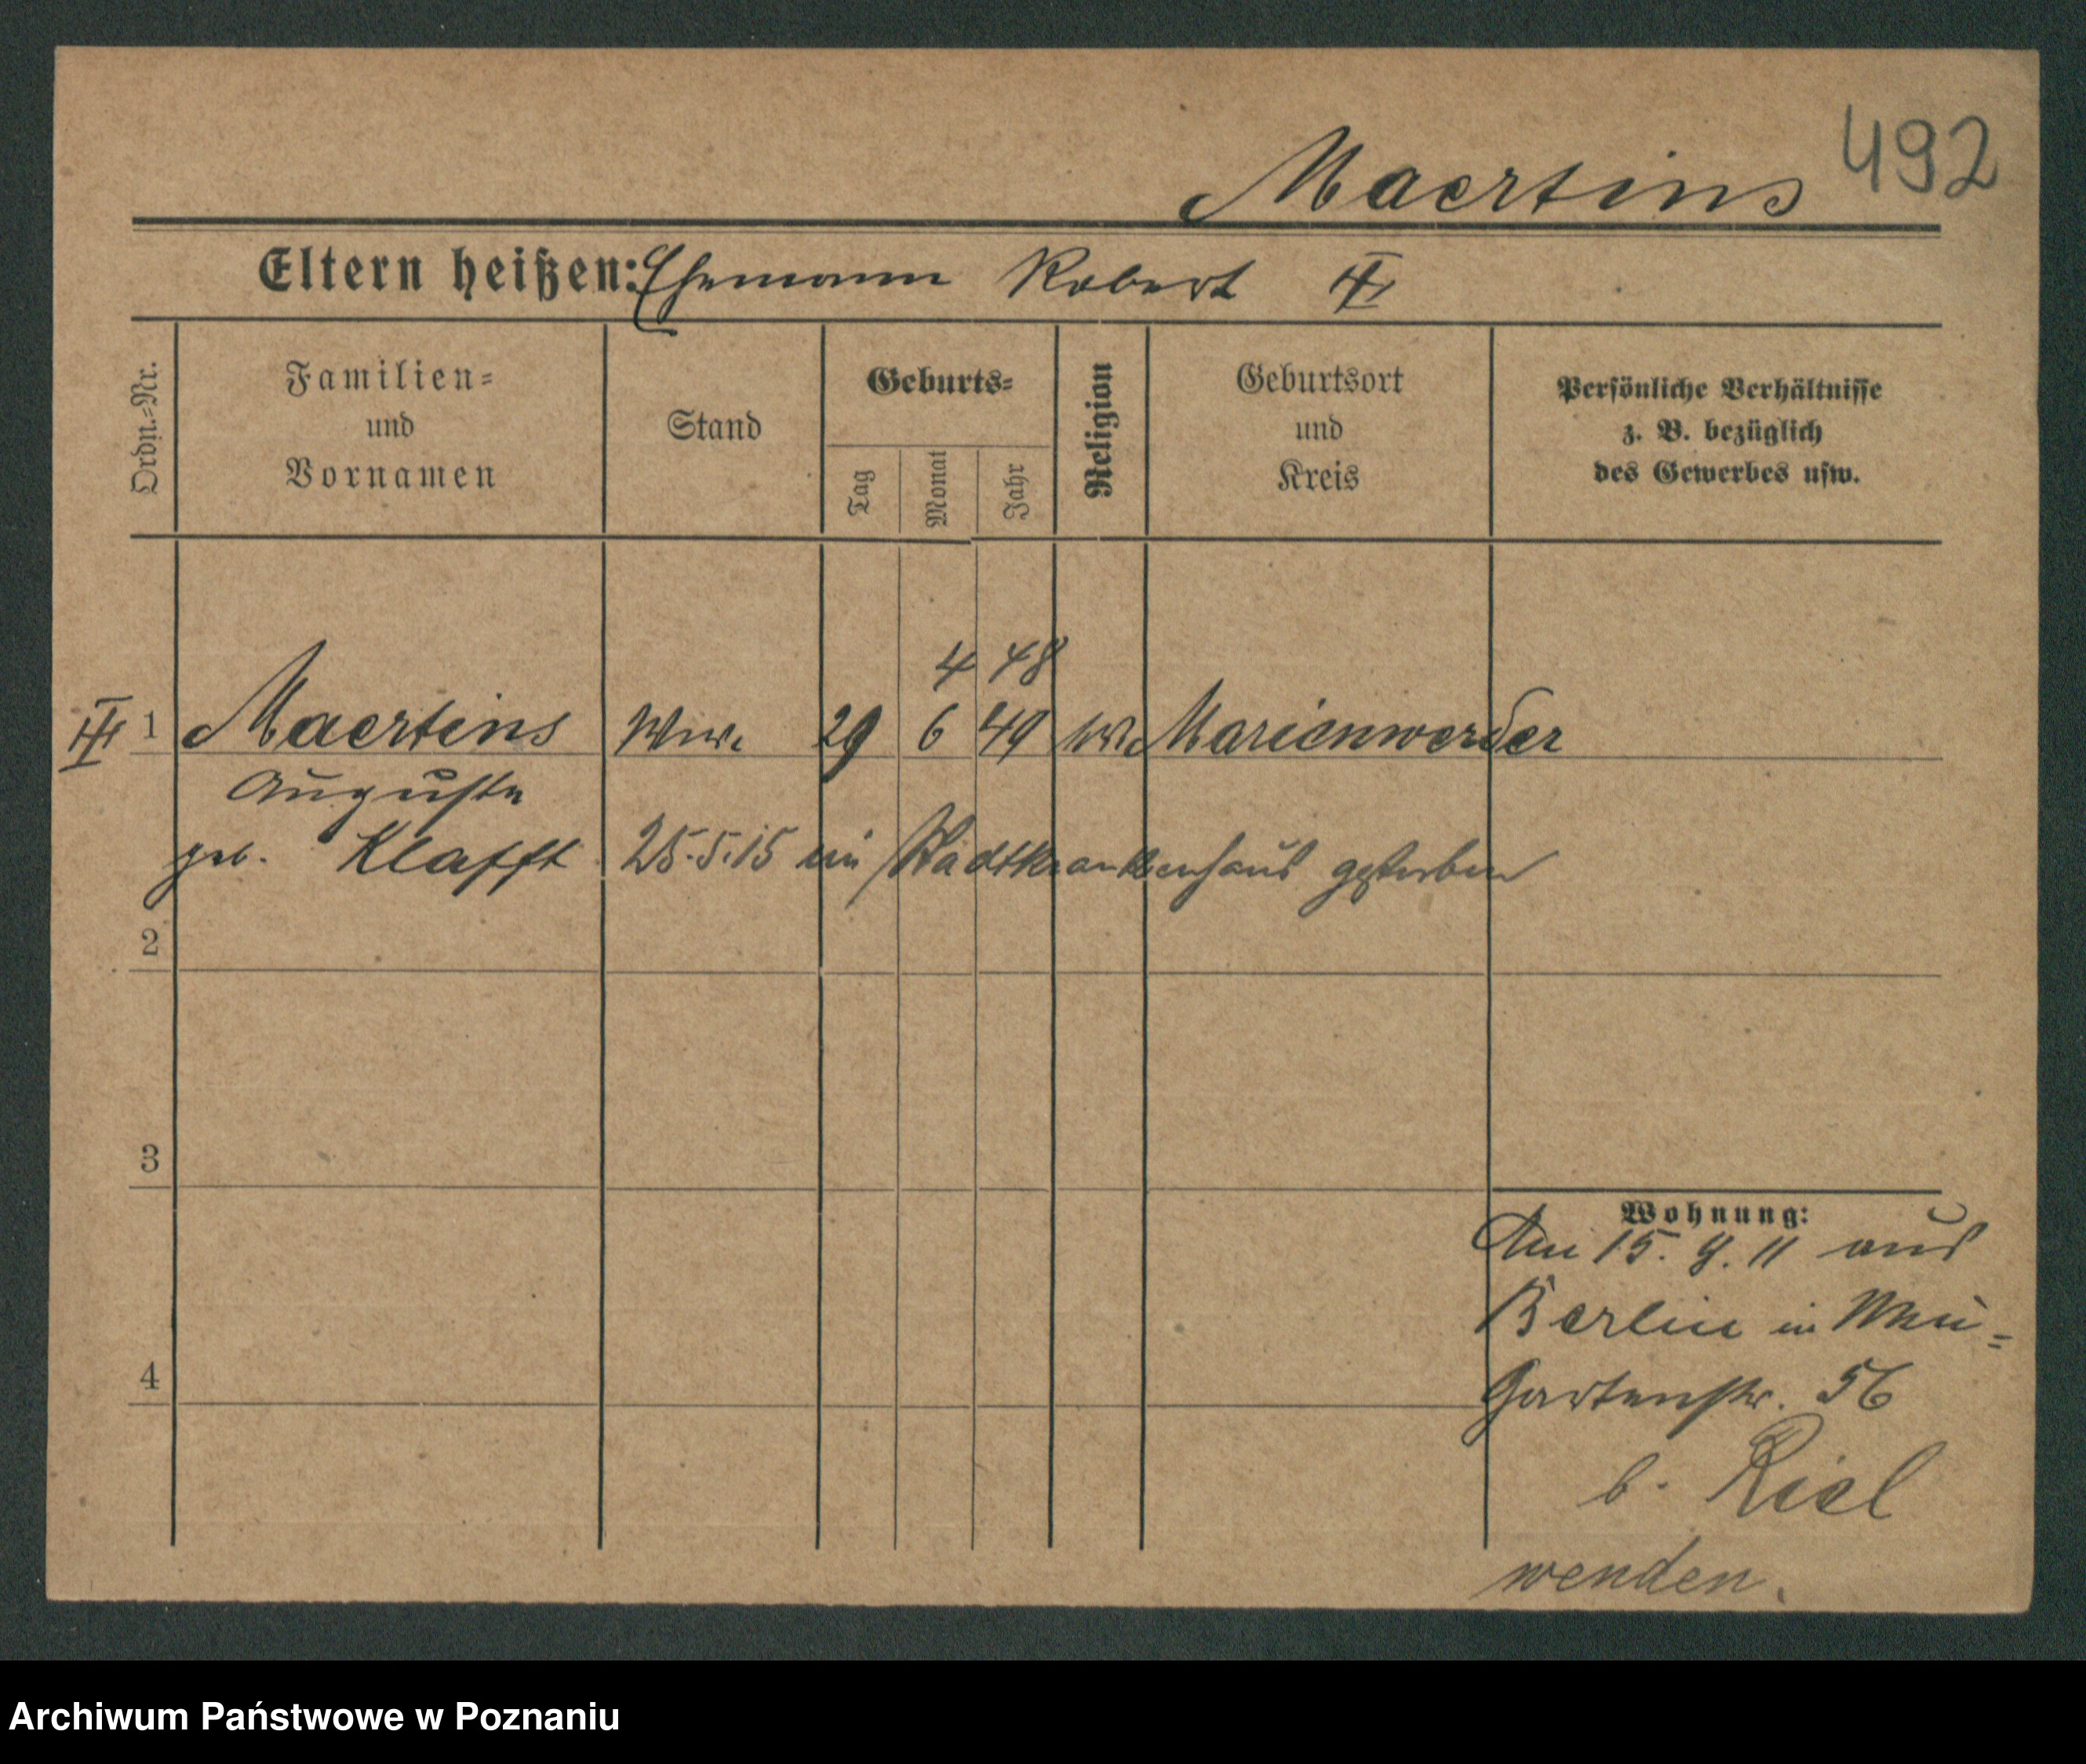 492
Maertins
Eltern heißen: Ehemann Robert
Ordn.-Nr.
Familien-
und
Vornamen
Stand
Geburts-
Tag
Monat
Jahr
Religion
Geburtsort
und
Kreis
Persönliche Verhältnisse
z. B. bezüglich
des Gewerbes usw.
4 48
1 Maertins Wwe. 29 6 49 Marienwerder
Auguste
geb. Klafft 25.5.15 im Stadtkrankenhaus gestorben
2
3
4
Wohnung:
Am 15. 9. 11 aus
Berlin in
Gartenstr. 56
b. Riel
wenden.
Archiwum Państwowe w Poznaniu